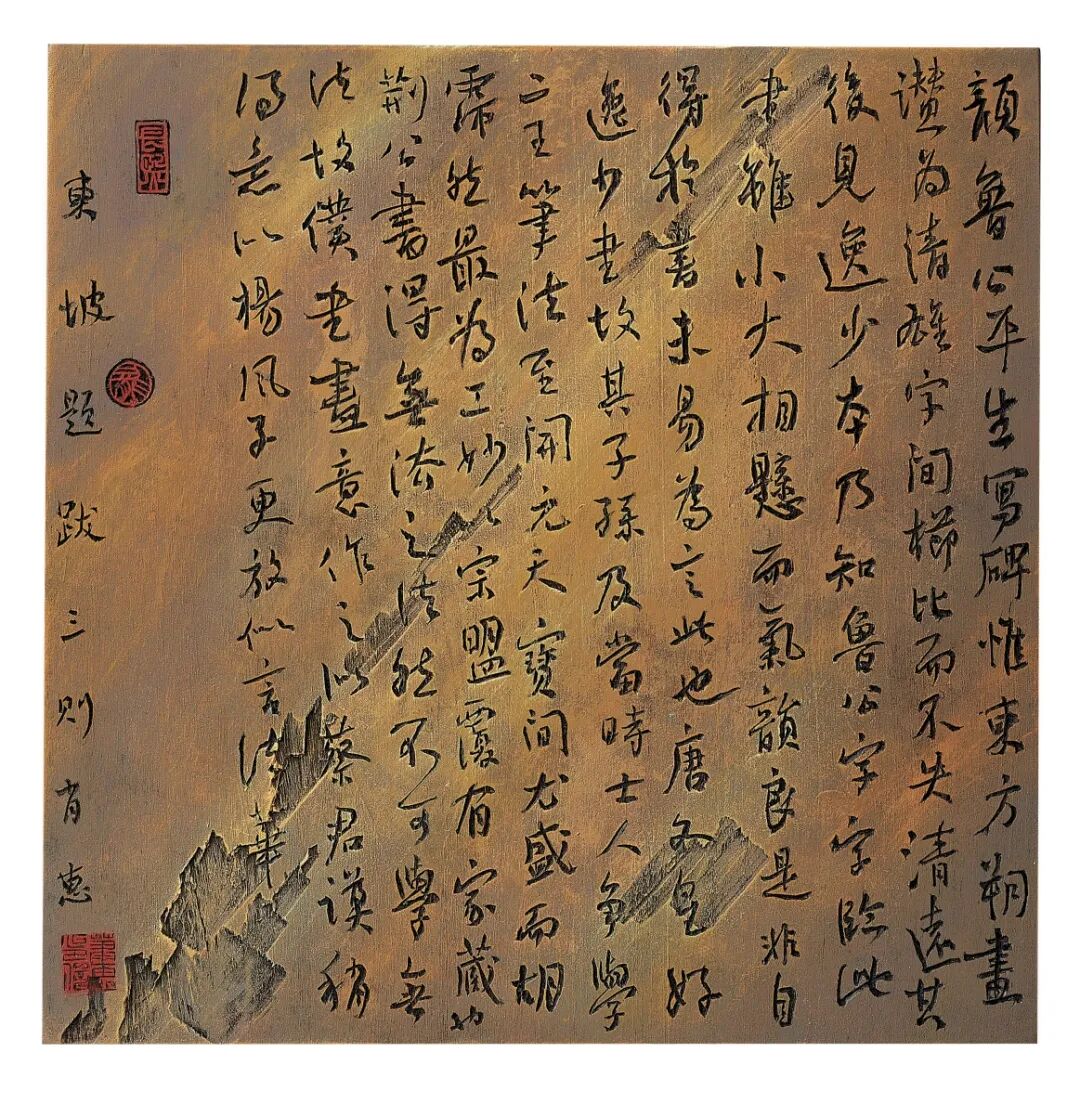 顔魯公平生寫碑惟東方朔畫
讚為清雄字間櫛比而不失清遠其
後見逸少本乃知魯公字字臨此
書雖小大相懸而氣韻良是非自
得於書未易為言此也唐文皇好
逸少書故其子孫及當時士人爭學
二王筆法至開元天寶間尤盛而胡
霈然最為工妙宗盟覆有家藏
荊公書得無法之法然不可學無
法故僕書盡意作之似蔡君謨稍
得意似楊風子更放似言法華
東坡題跋三則肖惠